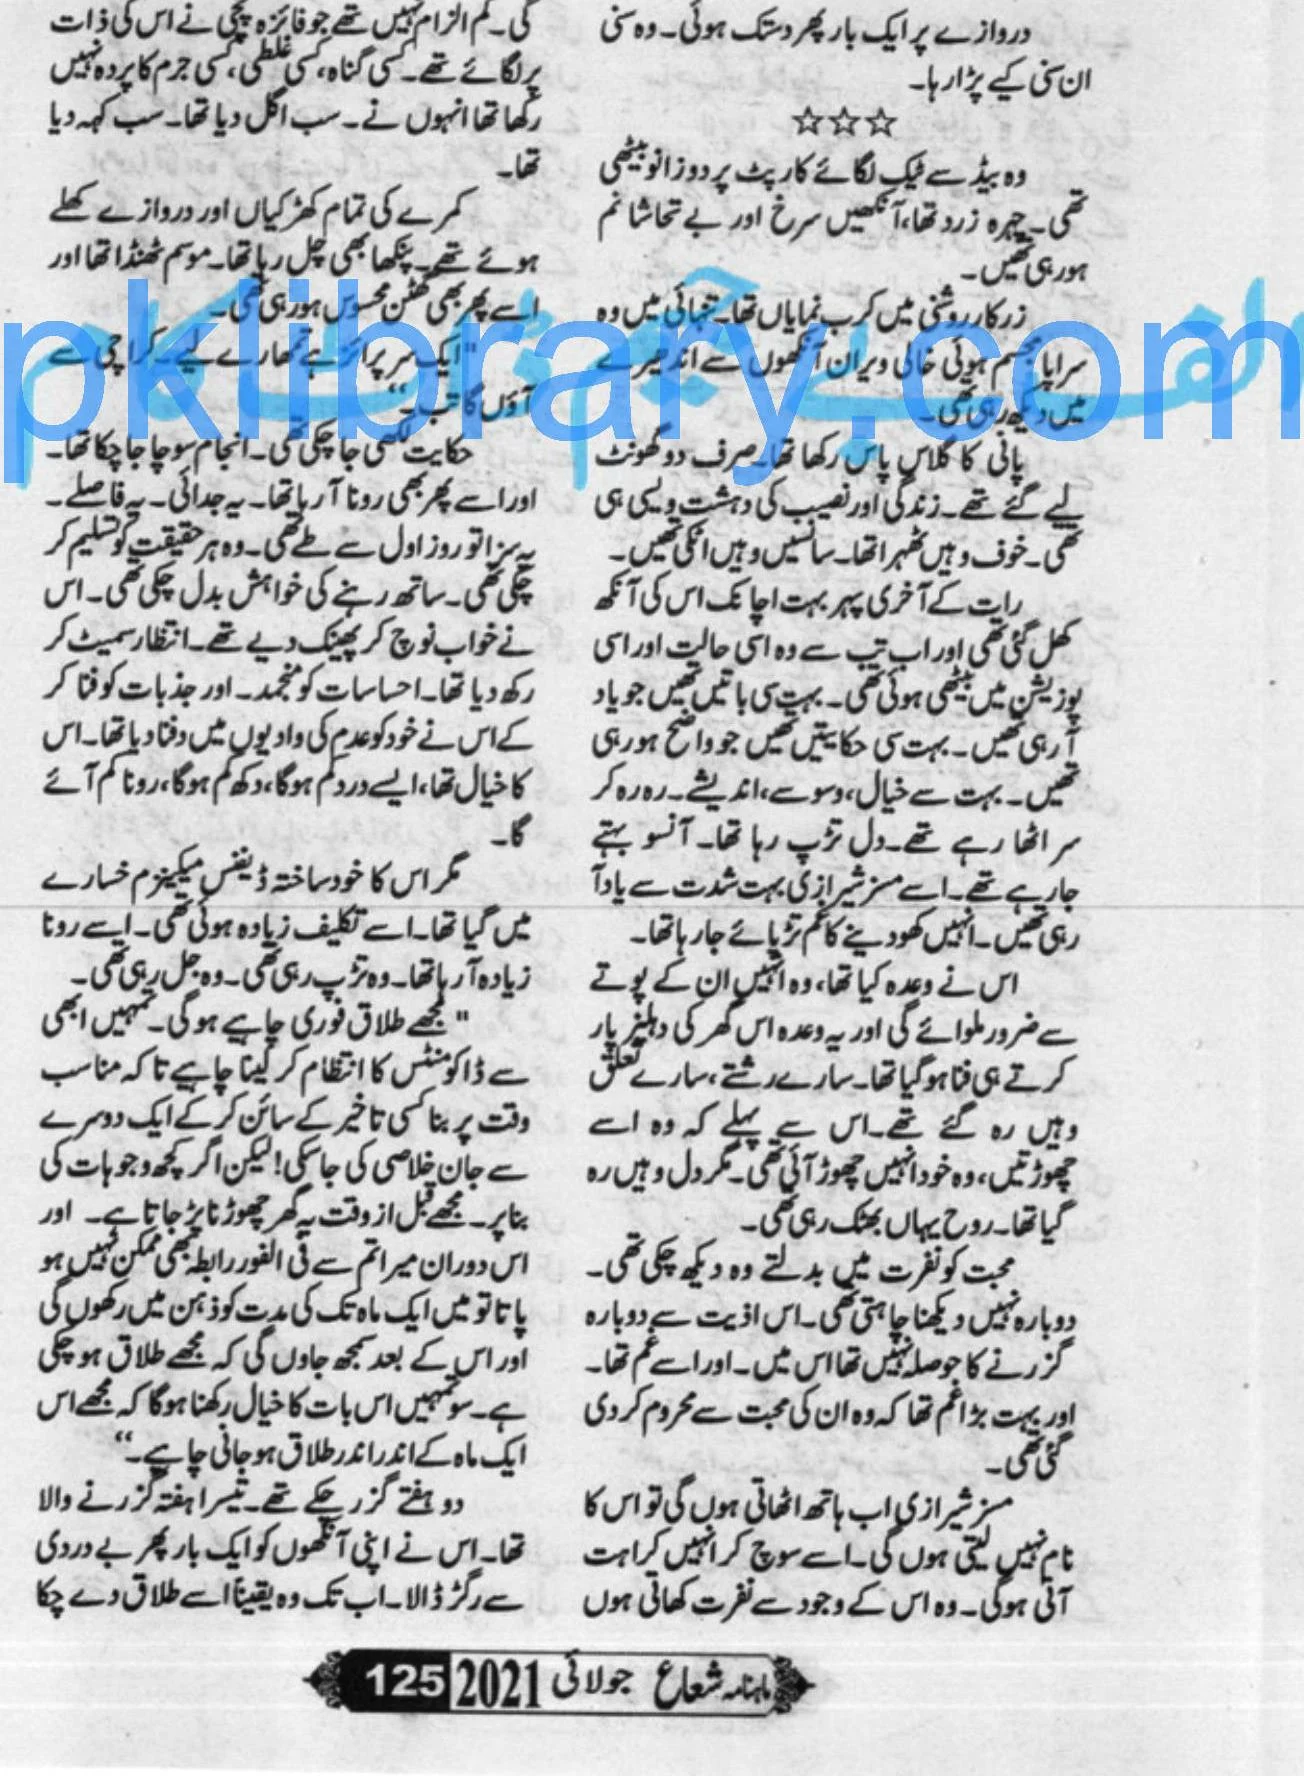 دروازے پر ایک بار پھر دستک ہوئی۔ وہ سنی
ان سنی کیے پڑا رہا۔
☆☆☆
وہ بیڈ سے ٹیک لگائے کارپٹ پر دوزانو بیٹھی
تھی۔ چہرہ زرد تھا، آنکھیں سرخ اور بے تحاشا نم
ہو رہی تھیں۔
زرکار روشنی میں کرب نمایاں تھا۔ تنہائی میں وہ
سراپا مجسم ہوئی خالی ویران آنکھوں سے اندھیرے
میں دیکھ رہی تھی۔
پانی کا گلاس پاس رکھا تھا۔ صرف دو گھونٹ
لیے گئے تھے۔ زندگی اور نصیب کی دہشت ویسی ہی
تھی۔ خوف وہیں ٹھہرا تھا۔ سانسیں وہیں اٹکی تھیں۔
رات کے آخری پہر بہت اچانک اس کی آنکھ
کھل گئی تھی اور اب تب سے وہ اسی حالت اور اسی
پوزیشن میں بیٹھی ہوئی تھی۔ بہت سی باتیں تھیں جو یاد
آ رہی تھیں۔ بہت سی حکایتیں تھیں جو واضح ہو رہی
تھیں۔ بہت سے خیال، وسوسے، اندیشے۔ رہ رہ کر
سر اٹھا رہے تھے۔ دل تڑپ رہا تھا۔ آنسو بہتے
جا رہے تھے۔ اسے مسز شیرازی بہت شدت سے یاد آ
رہی تھیں۔ انہیں کھو دینے کا غم تڑپائے جا رہا تھا۔
اس نے وعدہ کیا تھا، وہ انہیں ان کے پوتے
سے ضرور ملوائے گی اور یہ وعدہ اس گھر کی دہلیز پار
کرتے ہی فنا ہو گیا تھا۔ سارے رشتے، سارے تعلق
وہیں رہ گئے تھے۔ اس سے پہلے کہ وہ اسے
چھوڑتیں، وہ خود انہیں چھوڑ آئی تھی۔ مگر دل وہیں رہ
گیا تھا۔ روح یہاں بھٹک رہی تھی۔
محبت کو نفرت میں بدلتے وہ دیکھ چکی تھی۔
دوبارہ نہیں دیکھنا چاہتی تھی۔ اس اذیت سے دوبارہ
گزرنے کا حوصلہ نہیں تھا اس میں۔ اور اسے غم تھا۔
اور بہت بڑا غم تھا کہ وہ ان کی محبت سے محروم کر دی
گئی تھی۔
مسز شیرازی اب ہاتھ اٹھاتی ہوں گی تو اس کا
نام نہیں لیتی ہوں گی۔ اسے سوچ کر انہیں کراہت
آتی ہوگی۔ وہ اس کے وجود سے نفرت کھاتی ہوں
گی۔ کم الزام نہیں تھے جو فائزہ چچی نے اس کی ذات
پر لگائے تھے۔ کسی گناہ، کسی غلطی، کسی جرم کا پردہ نہیں
رکھا تھا انہوں نے۔ سب اگل دیا تھا۔ سب کہہ دیا
تھا۔
کمرے کی تمام کھڑکیاں اور دروازے کھلے
ہوئے تھے۔ پنکھا بھی چل رہا تھا۔ موسم ٹھنڈا تھا اور
اسے پھر بھی گھٹن محسوس ہو رہی تھی۔
"ایک سرپرائز ہے تمہارے لیے۔ کراچی سے
آؤں گا تب۔"
حکایت لکھی جا چکی تھی۔ انجام سوچا جا چکا تھا۔
اور اسے پھر بھی رونا آ رہا تھا۔ یہ جدائی۔ یہ فاصلے۔
یہ سزا تو روز اول سے طے تھی۔ وہ ہر حقیقت کو تسلیم کر
چکی تھی۔ ساتھ رہنے کی خواہش بدل چکی تھی۔ اس
نے خواب نوچ کر پھینک دیے تھے۔ انتظار سمیٹ کر
رکھ دیا تھا۔ احساسات کو منجمد۔ اور جذبات کو فنا کر
کے اس نے خود کو عدم کی وادیوں میں دفنا دیا تھا۔ اس
کا خیال تھا، ایسے درد کم ہوگا، دکھ کم ہوگا، رونا کم آئے
گا۔
مگر اس کا خود ساختہ ڈیفنس میکینزم خسارے
میں گیا تھا۔ اسے تکلیف زیادہ ہوئی تھی۔ اسے رونا
زیادہ آ رہا تھا۔ وہ تڑپ رہی تھی۔ وہ جل رہی تھی۔
"مجھے طلاق فوری چاہیے ہوگی۔ تمہیں ابھی
سے ڈاکومنٹس کا انتظام کر لینا چاہیے تاکہ مناسب
وقت پر بنا کسی تاخیر کے سائن کر کے ایک دوسرے
سے جان خلاصی کی جا سکے! لیکن اگر کچھ وجوہات کی
بنا پر۔ مجھے قبل از وقت یہ گھر چھوڑنا پڑ جاتا ہے۔ اور
اس دوران میرا تم سے فی الفور رابطہ بھی ممکن نہیں ہو
پاتا تو میں ایک ماہ تک کی مدت کو ذہن میں رکھوں گی
اور اس کے بعد سمجھ جاوں گی کہ مجھے طلاق ہو چکی
ہے۔ سو تمہیں اس بات کا خیال رکھنا ہوگا کہ مجھے اس
ایک ماہ کے اندر اندر طلاق ہو جانی چاہیے۔"
دو ہفتے گزر چکے تھے۔ تیسرا ہفتہ گزرنے والا
تھا۔ اس نے اپنی آنکھوں کو ایک بار پھر بے دردی
سے رگڑ ڈالا۔ اب تک وہ یقیناً اسے طلاق دے چکا
ماہنامہ شعاع جولائی 2021 125
pklibrary.com